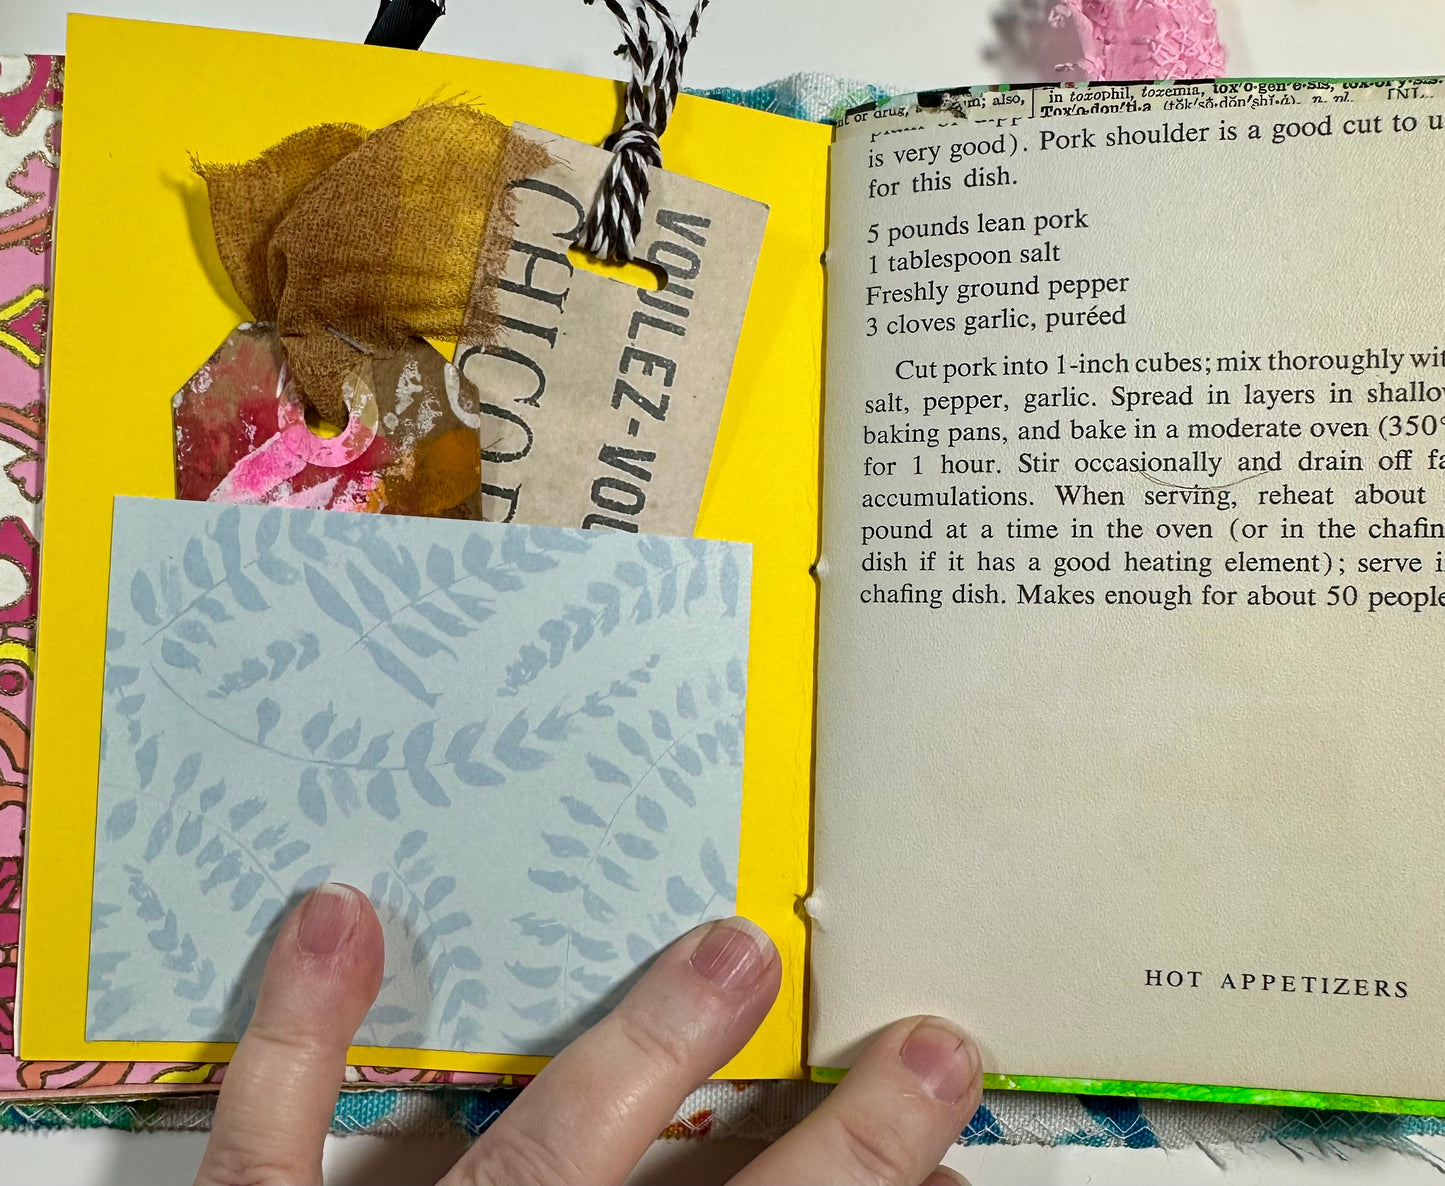 CHICOR
VOULEZ-VOU
or drug, also, in toxophil, toxemia, tox′o·gen′e·sis,
Tox′o·don′ti·a (tŏk′sô·dŏn′shĭ·á). n. pl.
is very good). Pork shoulder is a good cut to u
for this dish.
5 pounds lean pork
1 tablespoon salt
Freshly ground pepper
3 cloves garlic, puréed
Cut pork into 1-inch cubes; mix thoroughly wit
salt, pepper, garlic. Spread in layers in shallow
baking pans, and bake in a moderate oven (350°
for 1 hour. Stir occasionally and drain off fa
accumulations. When serving, reheat about
pound at a time in the oven (or in the chafin
dish if it has a good heating element); serve i
chafing dish. Makes enough for about 50 people
HOT APPETIZERS